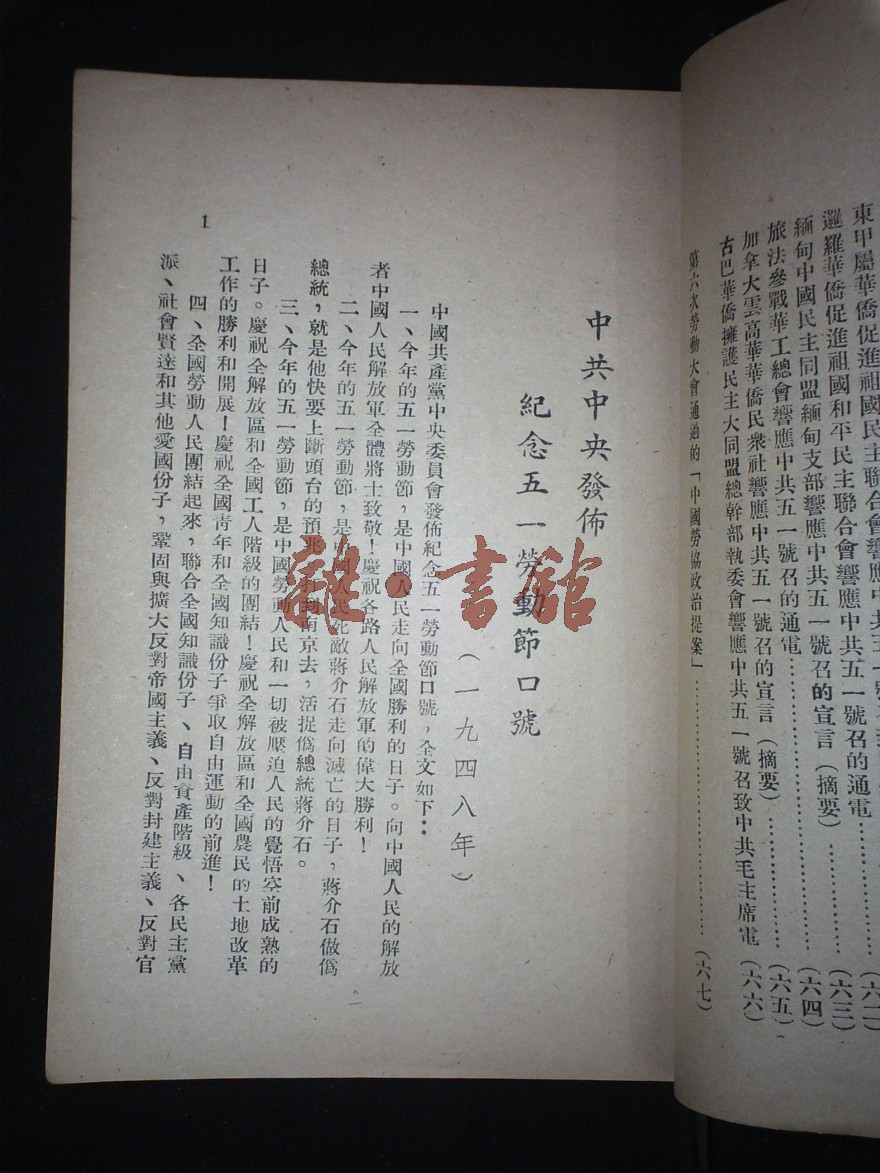 東甲屬華僑促進祖國民主聯合會響應中共五一號
暹羅華僑促進祖國和平民主聯合會響應中共五一號召的通電 (六三)
緬甸中國民主同盟緬甸支部響應中共五一號召的宣言(摘要) (六四)
旅法參戰華工總會響應中共五一號召的通電 (六五)
加拿大雲高華華僑民衆社響應中共五一號召的宣言(摘要) (六六)
古巴華僑擁護民主大同盟總幹部執委會響應中共五一號召致中共毛主席電
第六次勞動大會通過的「中國勞協政治提案」 (六七)
中共中央發佈
紀念五一勞動節口號
(一九四八年)
中國共產黨中央委員會發佈紀念五一勞動節口號,全文如下:
一、今年的五一勞動節,是中國人民走向全國勝利的日子。向中國人民的解放
者中國人民解放軍全體將士致敬!慶祝各路人民解放軍的偉大勝利!
二、今年的五一勞動節,是中國人民死敵蔣介石走向滅亡的日子,蔣介石做僞
總統,就是他快要上斷頭台的預兆。打到南京去,活捉僞總統蔣介石。
三、今年的五一勞動節,是中國勞動人民和一切被壓迫人民的覺悟空前成熟的
日子。慶祝全解放區和全國工人階級的團結!慶祝全解放區和全國農民的土地改革
工作的勝利和開展!慶祝全國靑年和全國知識份子爭取自由運動的前進!
四、全國勞動人民團結起來,聯合全國知識份子、自由資產階級、各民主黨
派、社會賢達和其他愛國份子,鞏固與擴大反對帝國主義、反對封建主義、反對官
1
雜·書館